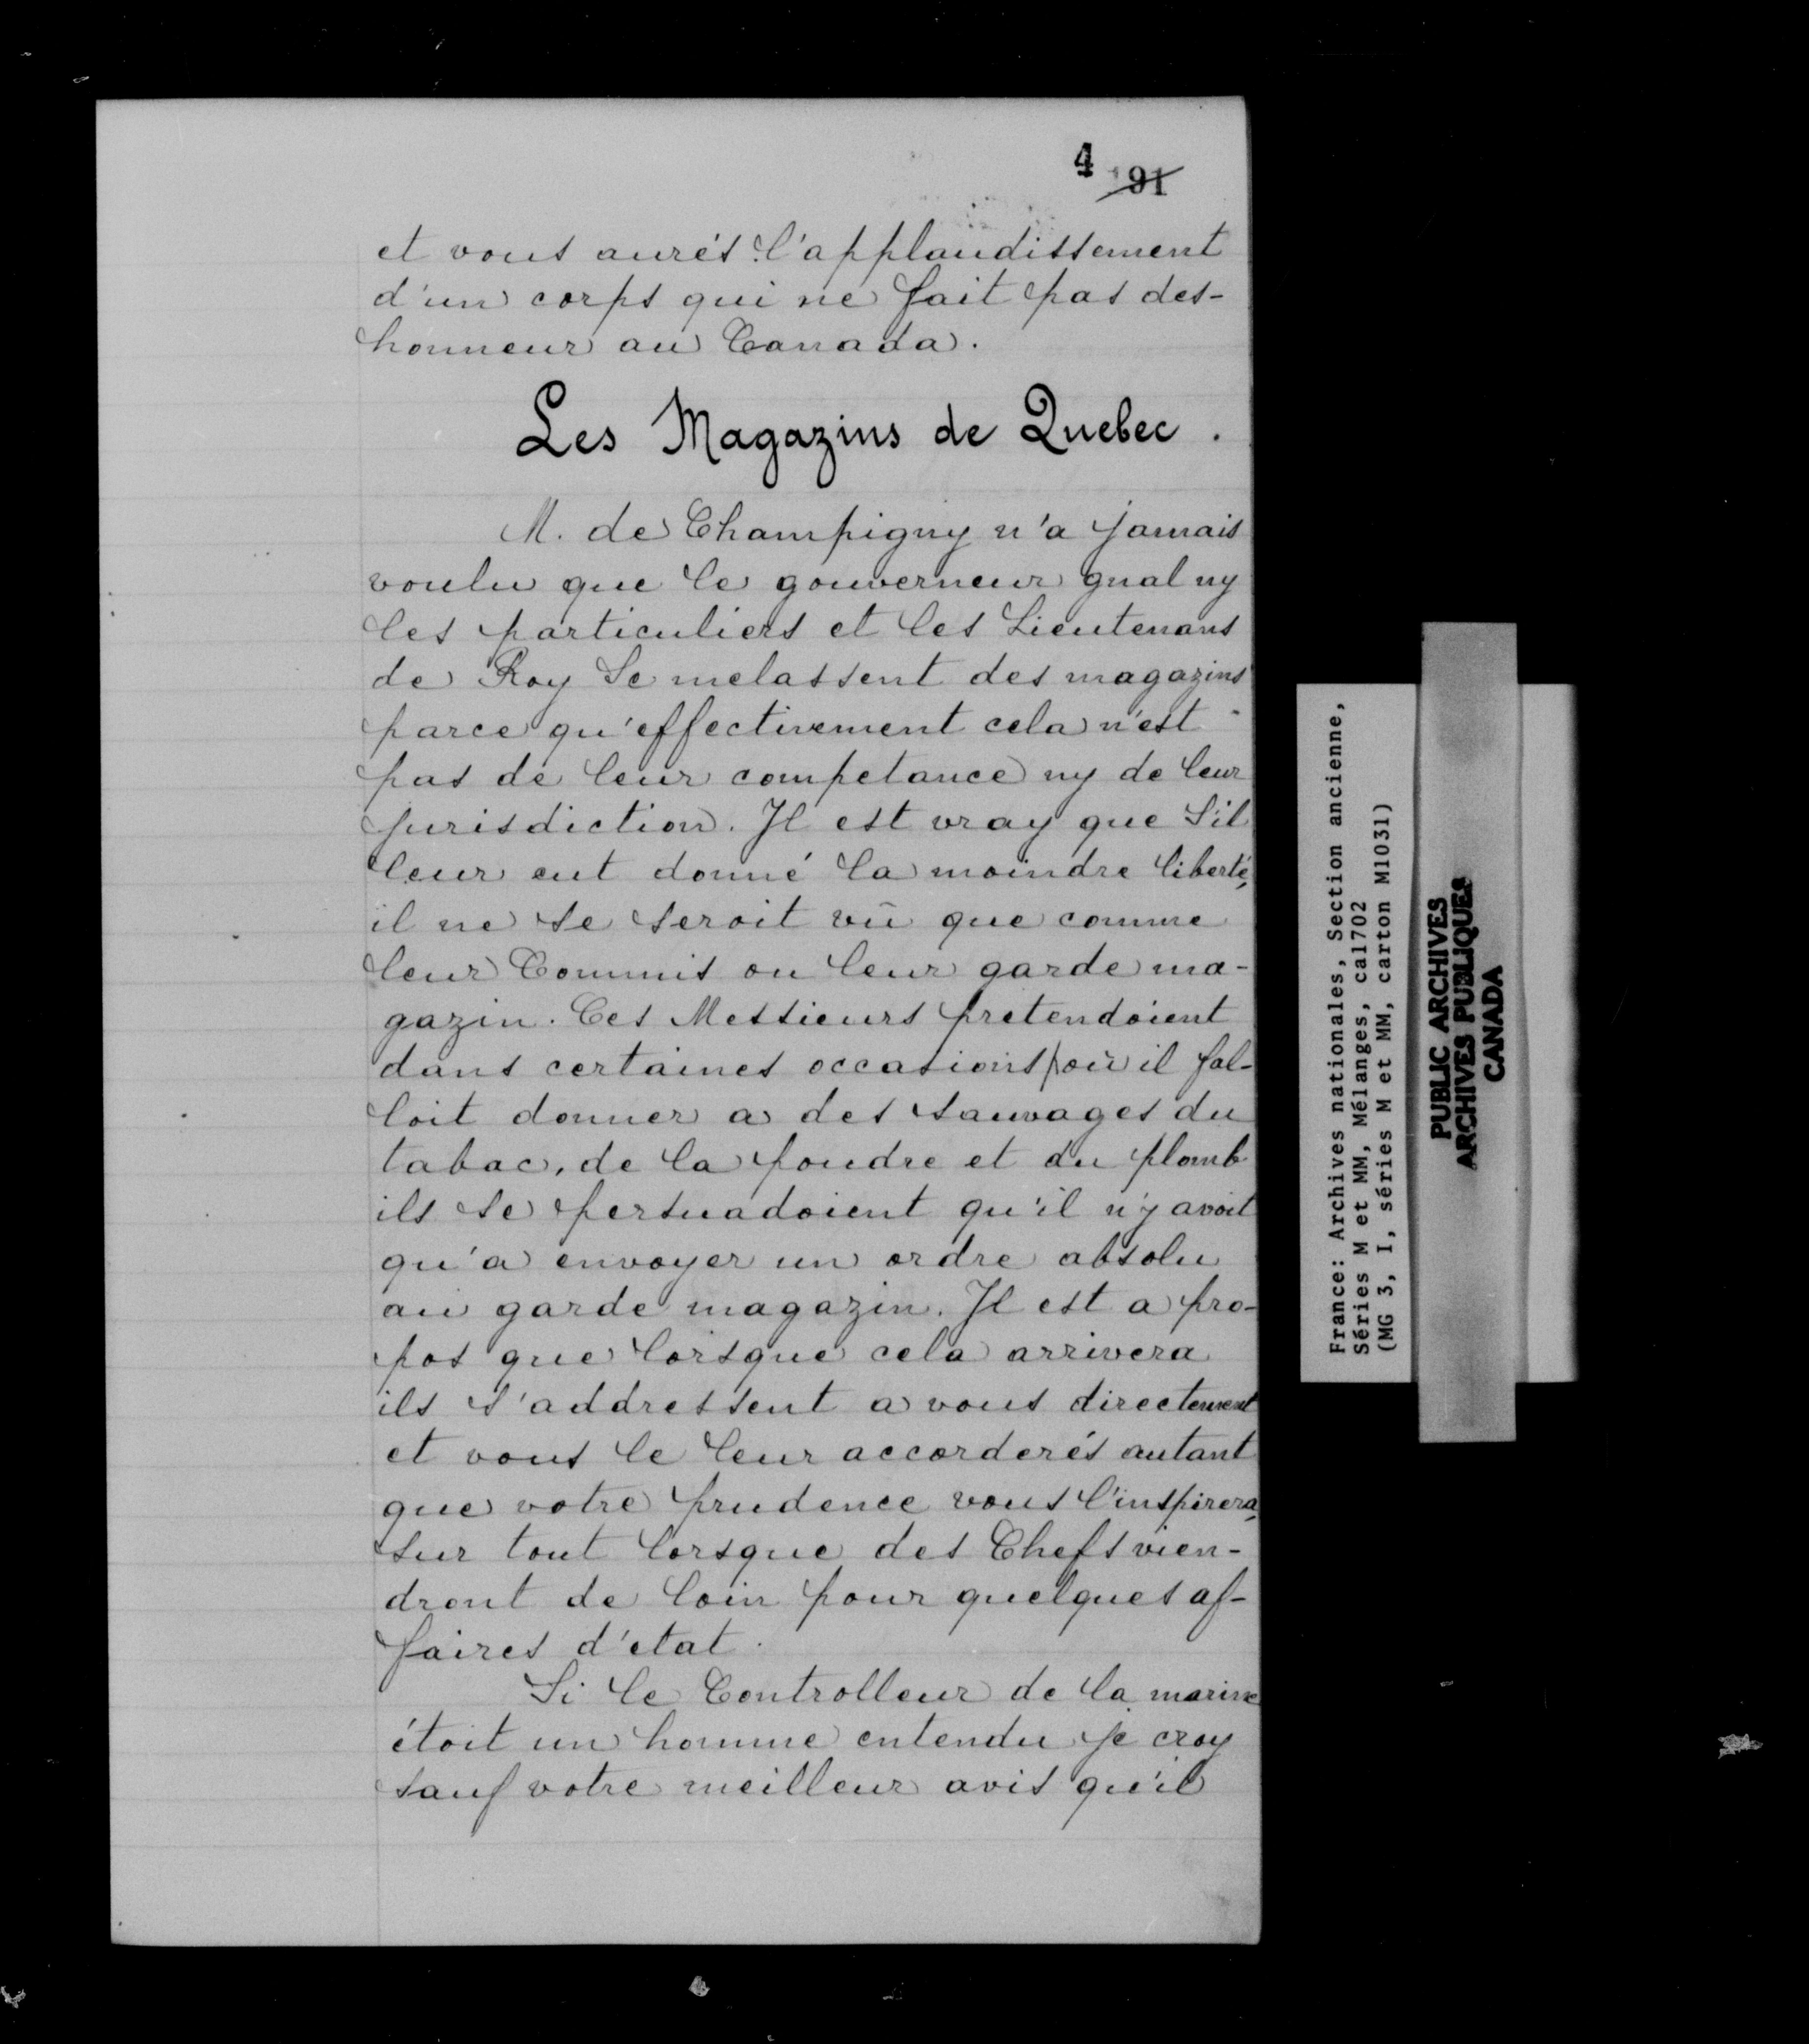 4
91
et vous aurés l'applaudissement
d'un corps qui ne fait pas des-
honneur au Canada.
Les Magazins de Quebec.
M. de Champigny n'a jamais
voulu que le gouverneur gnal ny
les particuliers et les Lieutenans
de Roy Se melassent des magazins
parce qu'effectivement cela n'est
pas de leur competance ny de leur
jurisdiction. Il est vray que S'il
leur eut donné la moindre liberté,
il ne se seroit vû que comme
leur Commis ou leur garde ma-
gazin. Ces Messieurs pretendoient
dans certaines occasions où il fal-
loit donner a des sauvages du
tabac, de la poudre et du plomb
ils se persuadoient qu'il n'y avoit
qu'a envoyer un ordre absolu
au garde magazin. Il est a pro-
pos que lorsque cela arrivera
ils s'addressent a vous directement
et vous le leur accorderés autant
que votre prudence vous l'inspirera,
sur tout lorsque des Chefs vien-
dront de loin pour quelques af-
faires d'etat.
Si le Controlleur de la marine
étoit un homme entendu je croy
sauf votre meilleur avis qu'il
France: Archives nationales, Section ancienne,
Séries M et MM, Mélanges, ca1702
(MG 3, I, séries M et MM, carton M1031)
PUBLIC ARCHIVES
ARCHIVES PUBLIQUES
CANADA